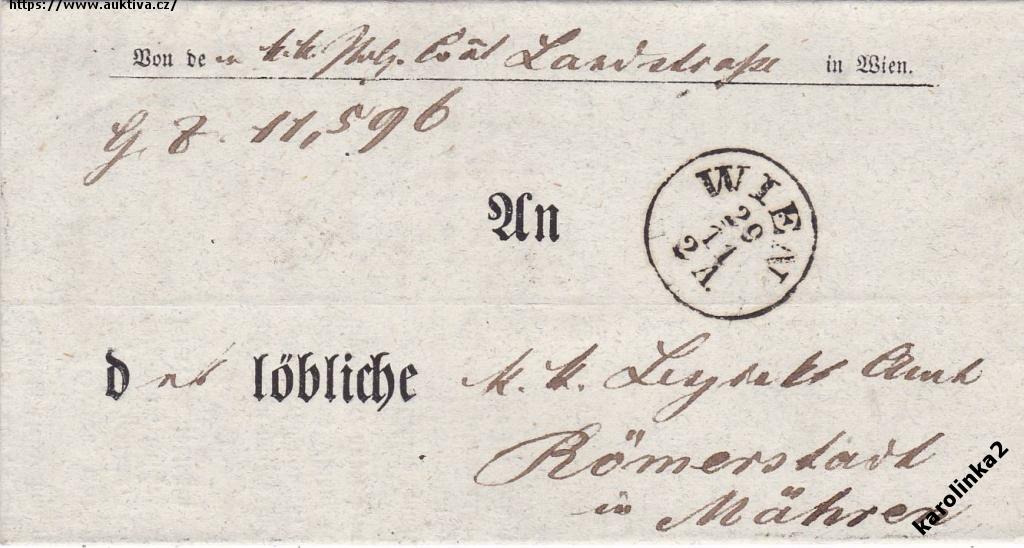 https://www.auktiva.cz/
Von den k.k. Polz. Coāt Landstraße in Wien.
G. Z. 11,596
An
WIEN
29
11
2 V.
das löbliche k. k. Bezirks Amt
Römerstadt
in Mähren
karolinka2